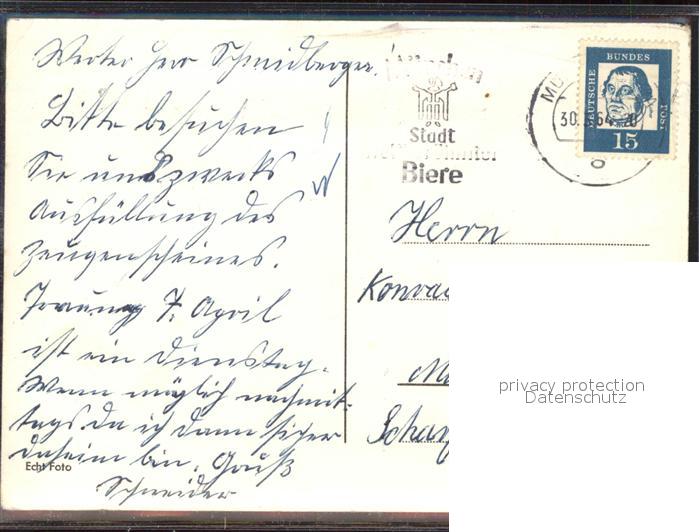 Werter Herr Schmidberger!
Bitte besuchen
Sie uns zwecks
Ausfüllung des
Zeugenscheines.
Trauung 7. April
ist ein Dienstag.
Wenn möglich nachmit-
tags da ich dann sicher
daheim bin. Gruß
Schneider
Echt Foto
München
Stadt
Biere
30.
64
DEUTSCHE BUNDES POST
15
Herrn
Konrad
privacy protection
Datenschutz